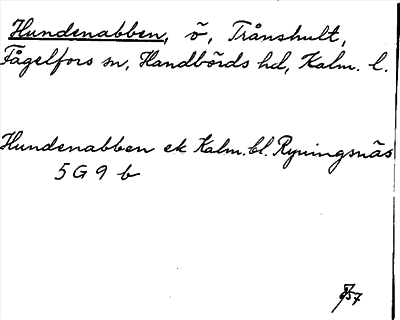 Hundenabben, ö, Trånshult,
Fågelfors sn, Handbörds hd, Kalm. l.
Hundenabben ek Kalm. bl. Ryningsnäs
5 G 9 b